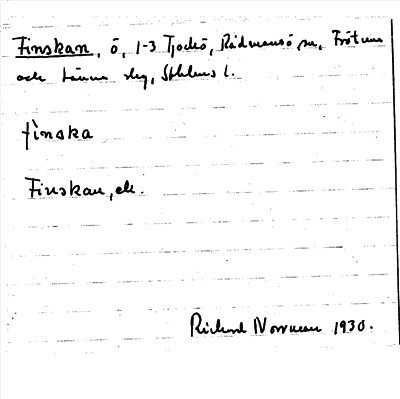 Finskan, ö, 1-3 Tjockö, Rådmansö sn, Frötuna
och Länna skg, Sthlms l.
fìnska
Finskan, ek.
Rickard Norrman 1930.